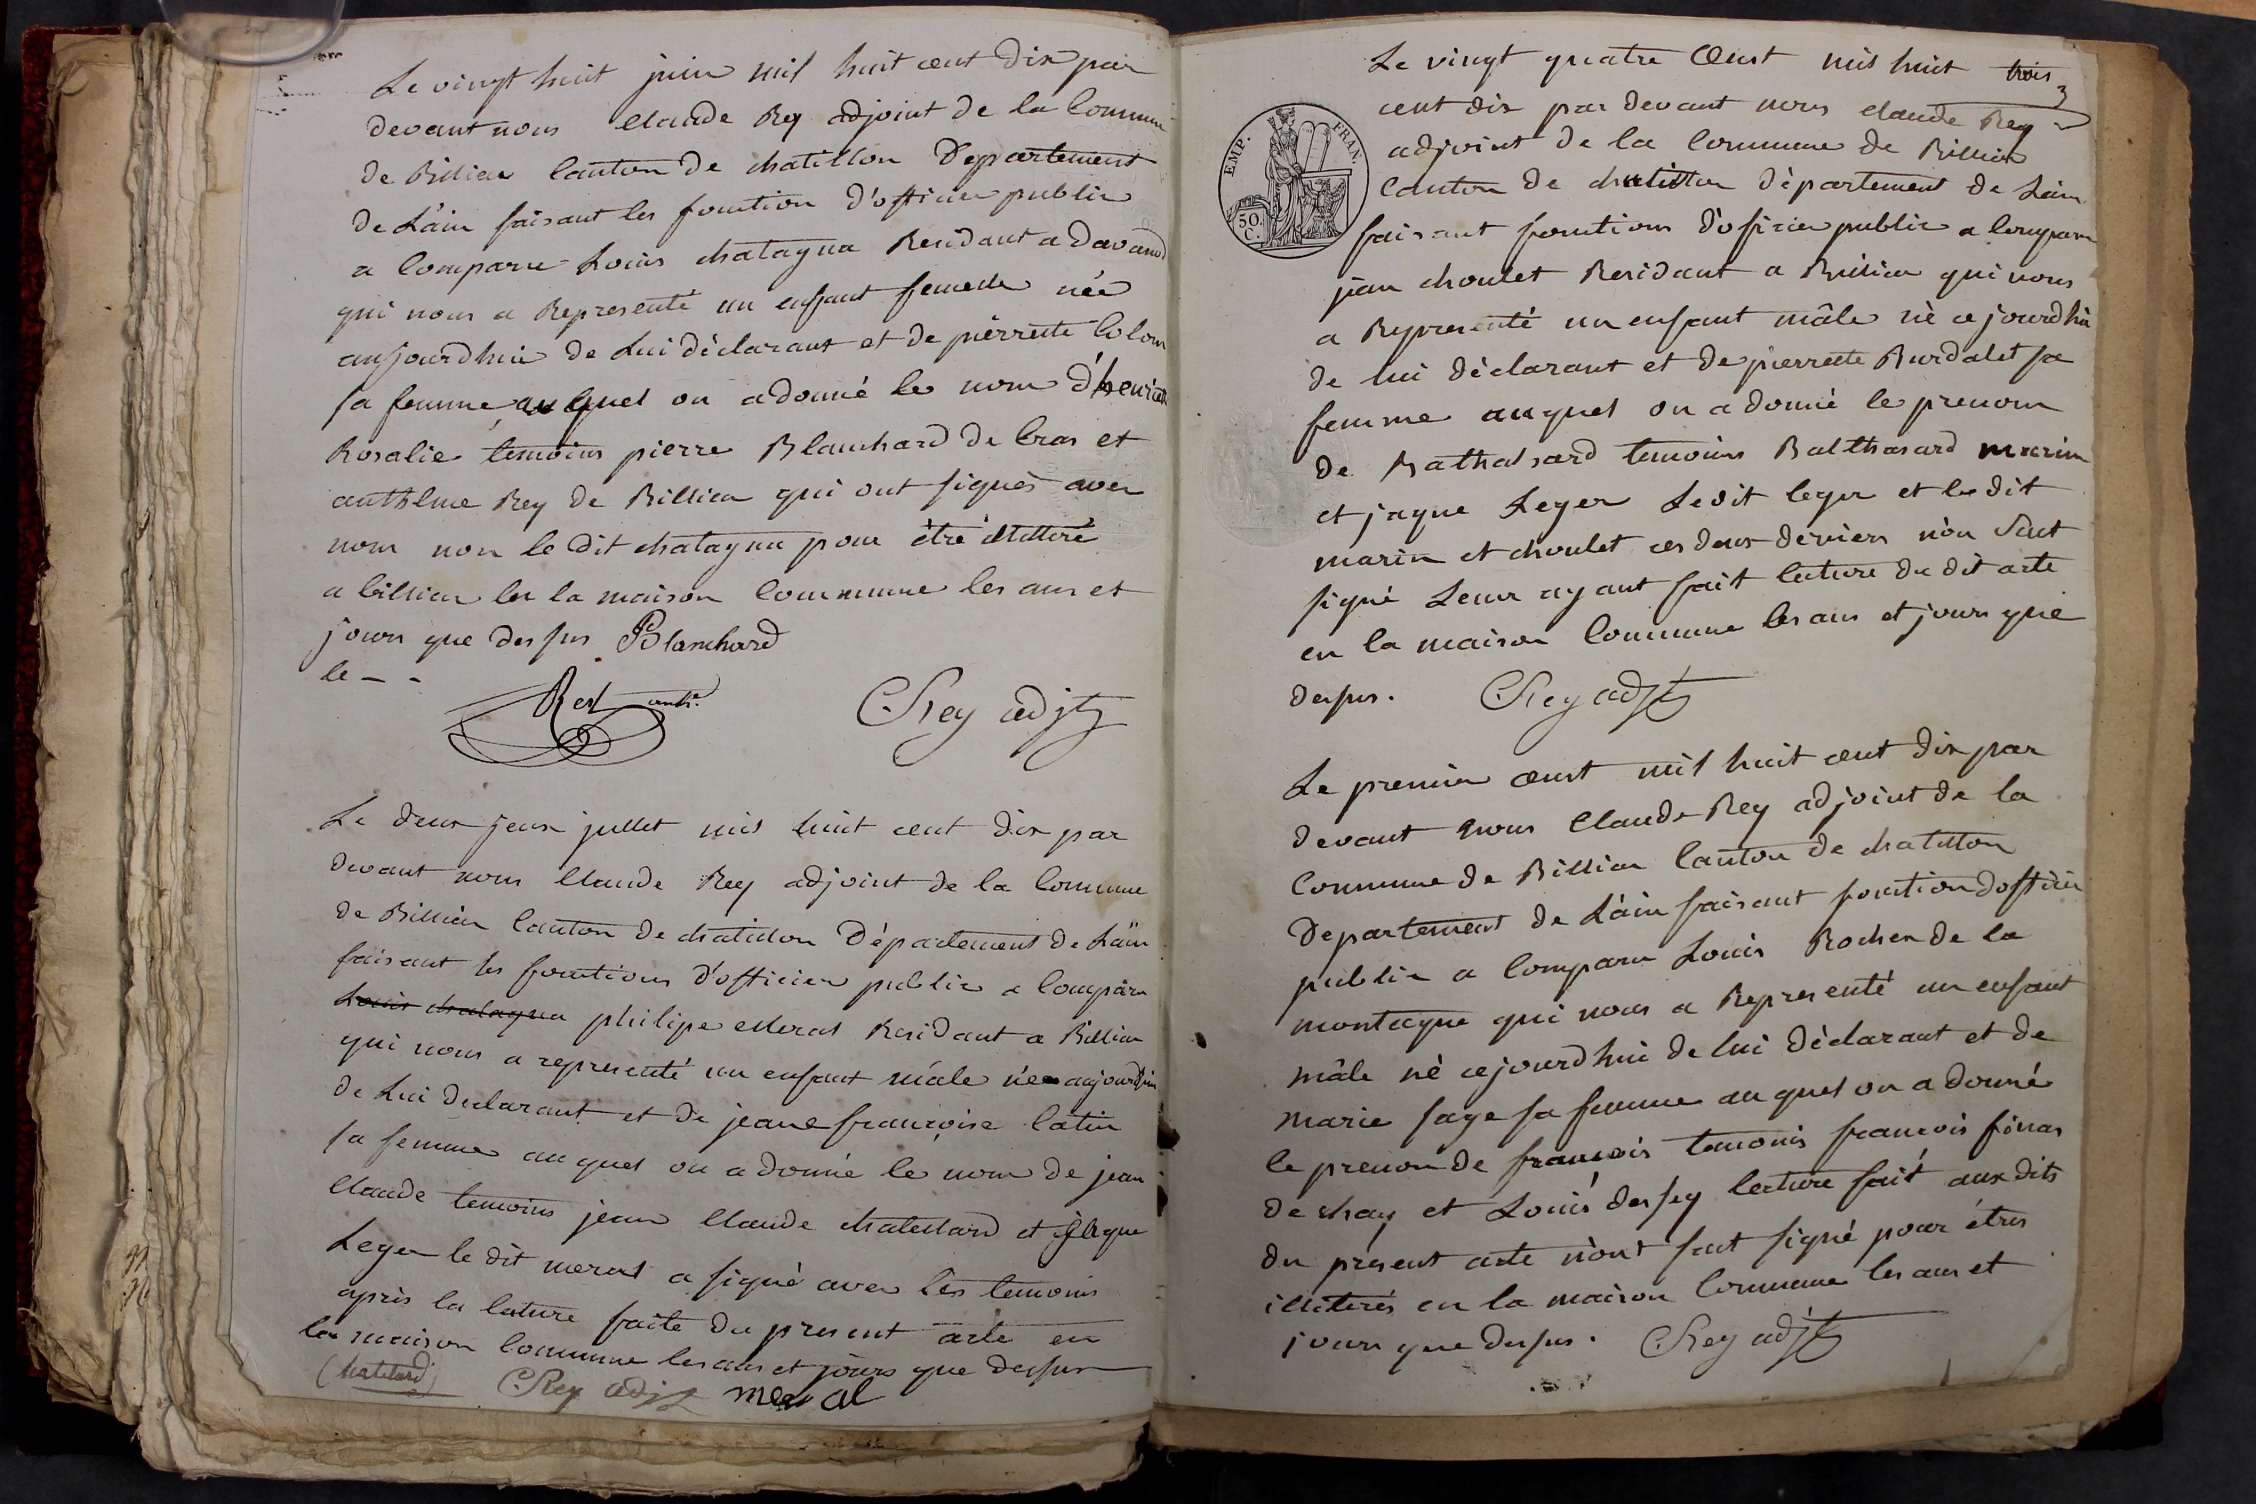 Le vingt huit juin mil huit cent dix par
devant nous Claude Rey adjoint de la Commune
de Billiea Canton de chatillon Departement
de L'ain faisant les fonction d'officier public
a Comparu Louis chatagna Residant a davanod
qui nous a Representé un enfant femelle née
aujourdhui de Lui déclarant et de pierrette Colom
sa femme auquel on a donné le nom d'henriette
Rosalie temoins pierre Blanchard de Cras et
anthlme Rey de Billiea qui ont signés avec
nous non le dit chatagna pour être illittéré
a billiea la maison Commune les ans et
jours que dessus PBlanchard
le - -
Rey anth.
CRey adjt
Le deux jeux jullet mil huit cent dix par
devant nous Claude Rey adjoint de la Commune
de Billiea Canton de chatillon Département de Lain
faisant les fonctions d'officier public a Comparu
Louis chatagna philipe Meral Residant a Billiea
qui nous a representé un enfant mâle née aujourdhui
de Lui declarant et de jeane francoise Catin
sa femme auquel on a donné le nom de jean
Claude temoins jean Claude chatellard et jaque
Leger le dit meral a signé avec les temoins
après la lecture faite du present acte en
la maison Commune les ans et jours que dessus
Chatelard CRey adjt meral
Le vingt quatre Oeust mil huit trois
3
cent dix par devant nous claude Rey
adjoint de la Commune de Billiea
Canton de chatillon département de Lain
faisant fonctions d'oficier public a Comparu
jean choulet Residant a Billiea qui nous
a Representé un enfant mâle né ce jourdhui
de lui déclarant et de pierrette Burdalet sa
femme auquel on a donné le prenom
de Bathalsard temoins Balthasard marin
et jaque Leger Ledit leger et le dit
marin et choulet ces deux derniers n'on saut
signé Leur ayant fait lecture du dit acte
en la maison Commune les ans et jours que
dessus. CRey adjt
EMP. FRAN.
50 C.
Le premier oeust mil huit cent dix par
devant nous Claude Rey adjoint de la
Commune de Billiea Canton de chatillon
Departement de L'ain faisant fonction dofficier
public a Comparu Louis Rochen de la
montagne qui nous a Representé un enfant
mâle né cejourdhui de lui déclarant et de
marie sage sa femme auquel on a donné
le prenom de francois temoins francois finas
de chay et Louis dessey lecture fait aux dits
du present acte n'ont saut signé pour êtres
illiterés en la maison Commune les ans et
jours que dessus. CRey adjt